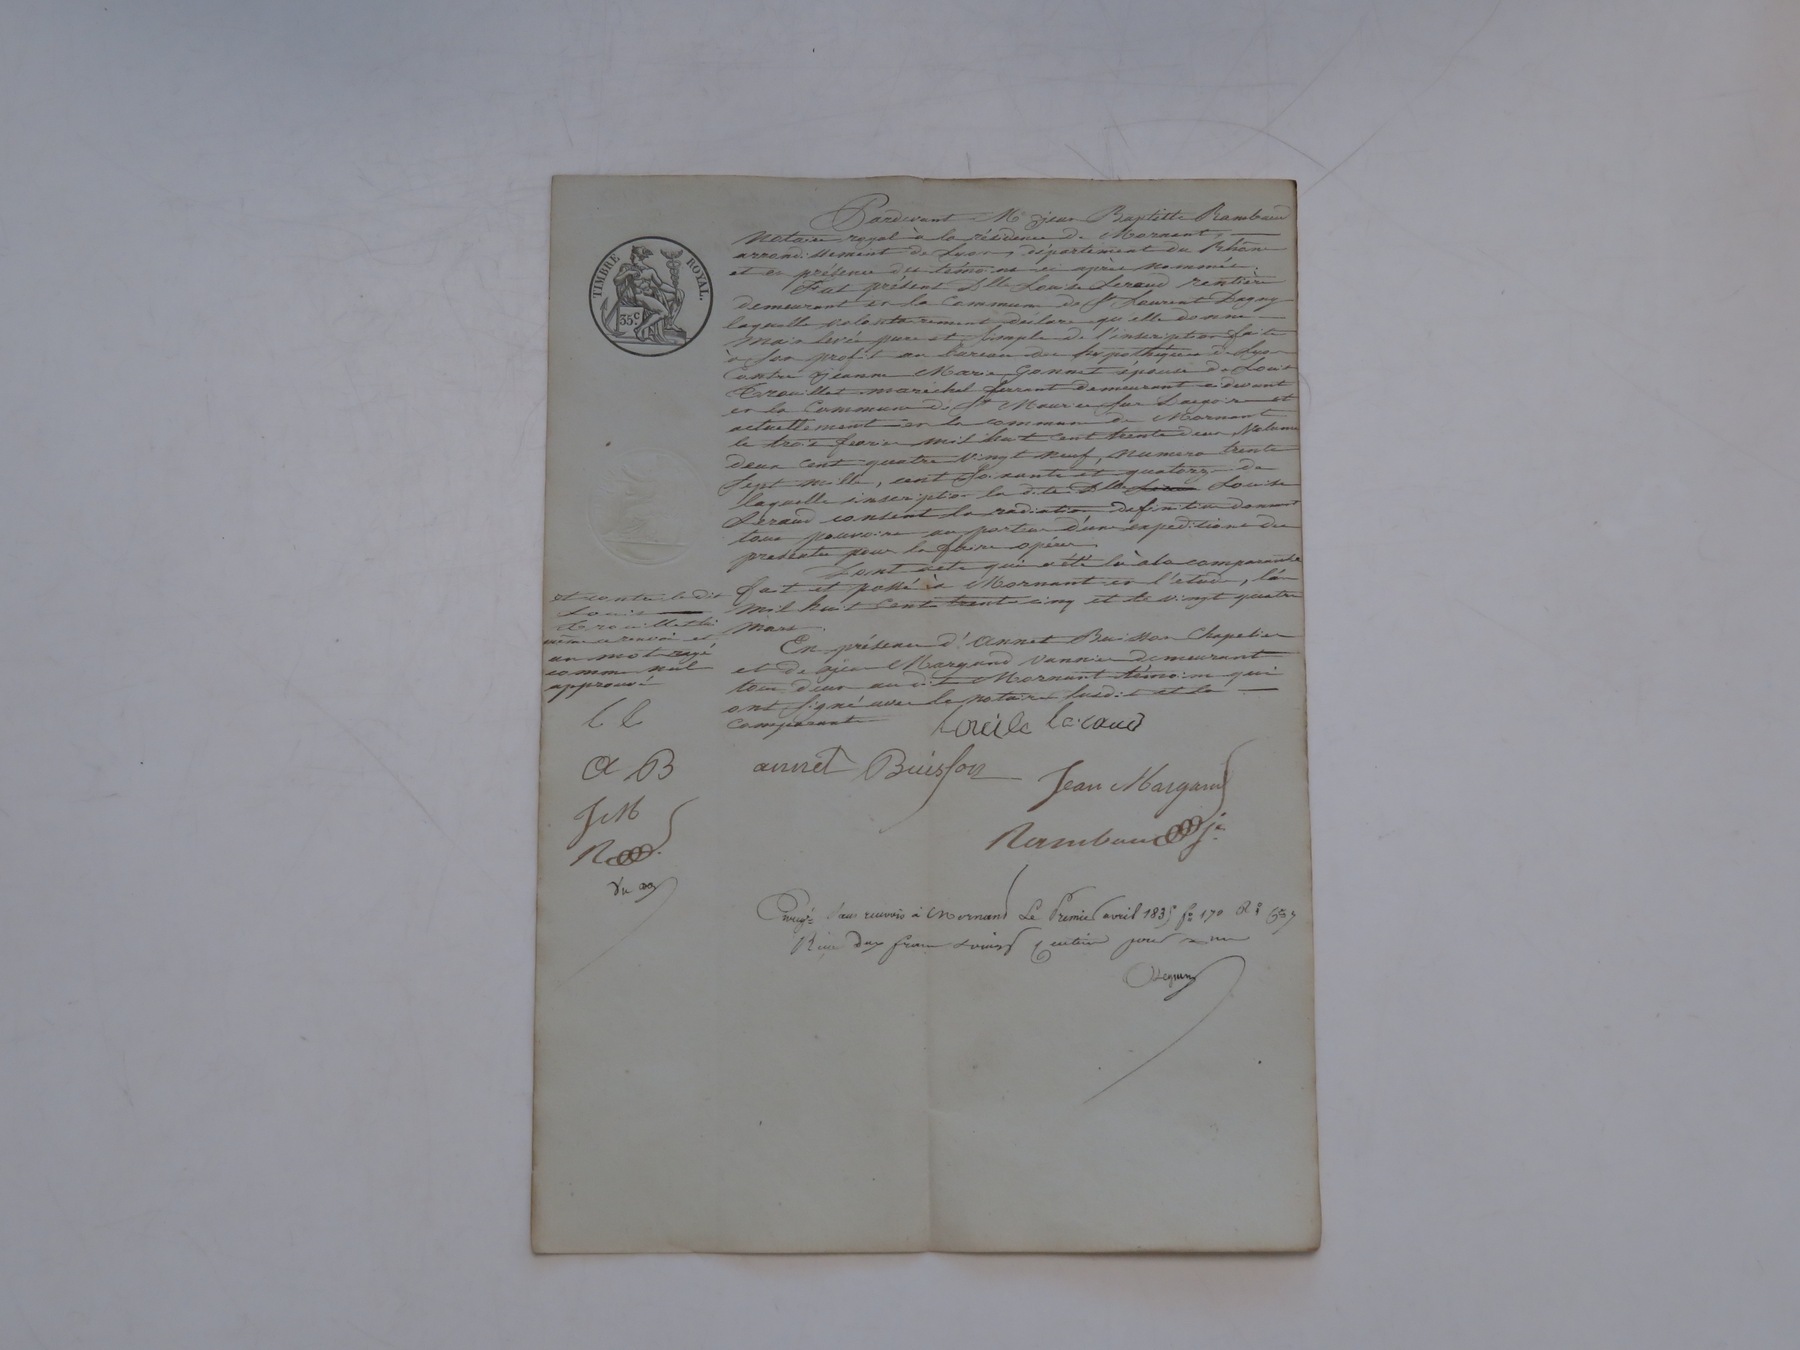 TIMBRE ROYAL.
35 c.
Pardevant Me Jean Baptiste Rambaud
Notaire royal à la résidence de Mornant,
arrondissement de Lyon, département du Rhône
et en présence des témoins ci après nommés.
Fut présent Dlle Louise Leraud rentière
demeurant en la Commune de St Laurent Dagny
laquelle volontairement déclare qu'elle donne
main levée pure et simple de l'inscription faite
à son profit au bureau des hypothèques de Lyon
Contre Jeanne Marie Gonnet épouse de Louis
Trouillet maréchal ferrant demeurant cidevant
en la Commune de St Maurice sur Dargoire et
actuellement en la commune de Mornant
le trois fevrier mil huit cent trente deux, Volume
deux cent quatre vingt neuf, numero trente
sept mille, cent soixante et quatorze de
laquelle inscription la dite Dlle Louise
Leraud consent la radiation definitive donnant
tous pouvoirs au porteur d'une expedition des
presentes pour la faire opérer.
Dont acte qui a été lu à la comparante
fait et passé à Mornant en l'étude, l'an
mil huit cent trente cinq et le vingt quatre
mars.
En présence d'Annet Buisson Chapelier
et de Jean Margand Vannier demeurant
tous deux au dit Mornant témoins qui
ont signé avec le notaire susdit et la
comparante
et contre le dit
Louis
Trouillet lui
même ce renvoi et
un mot rayé
comme nul
approuvé
L L
A B
J M
R
Louise Leraud
annet Buisson
Jean Margand
Rambaud
Enregé sans renvois à Mornant Le Premier avril 1835 fo 170
Reçu deux francs